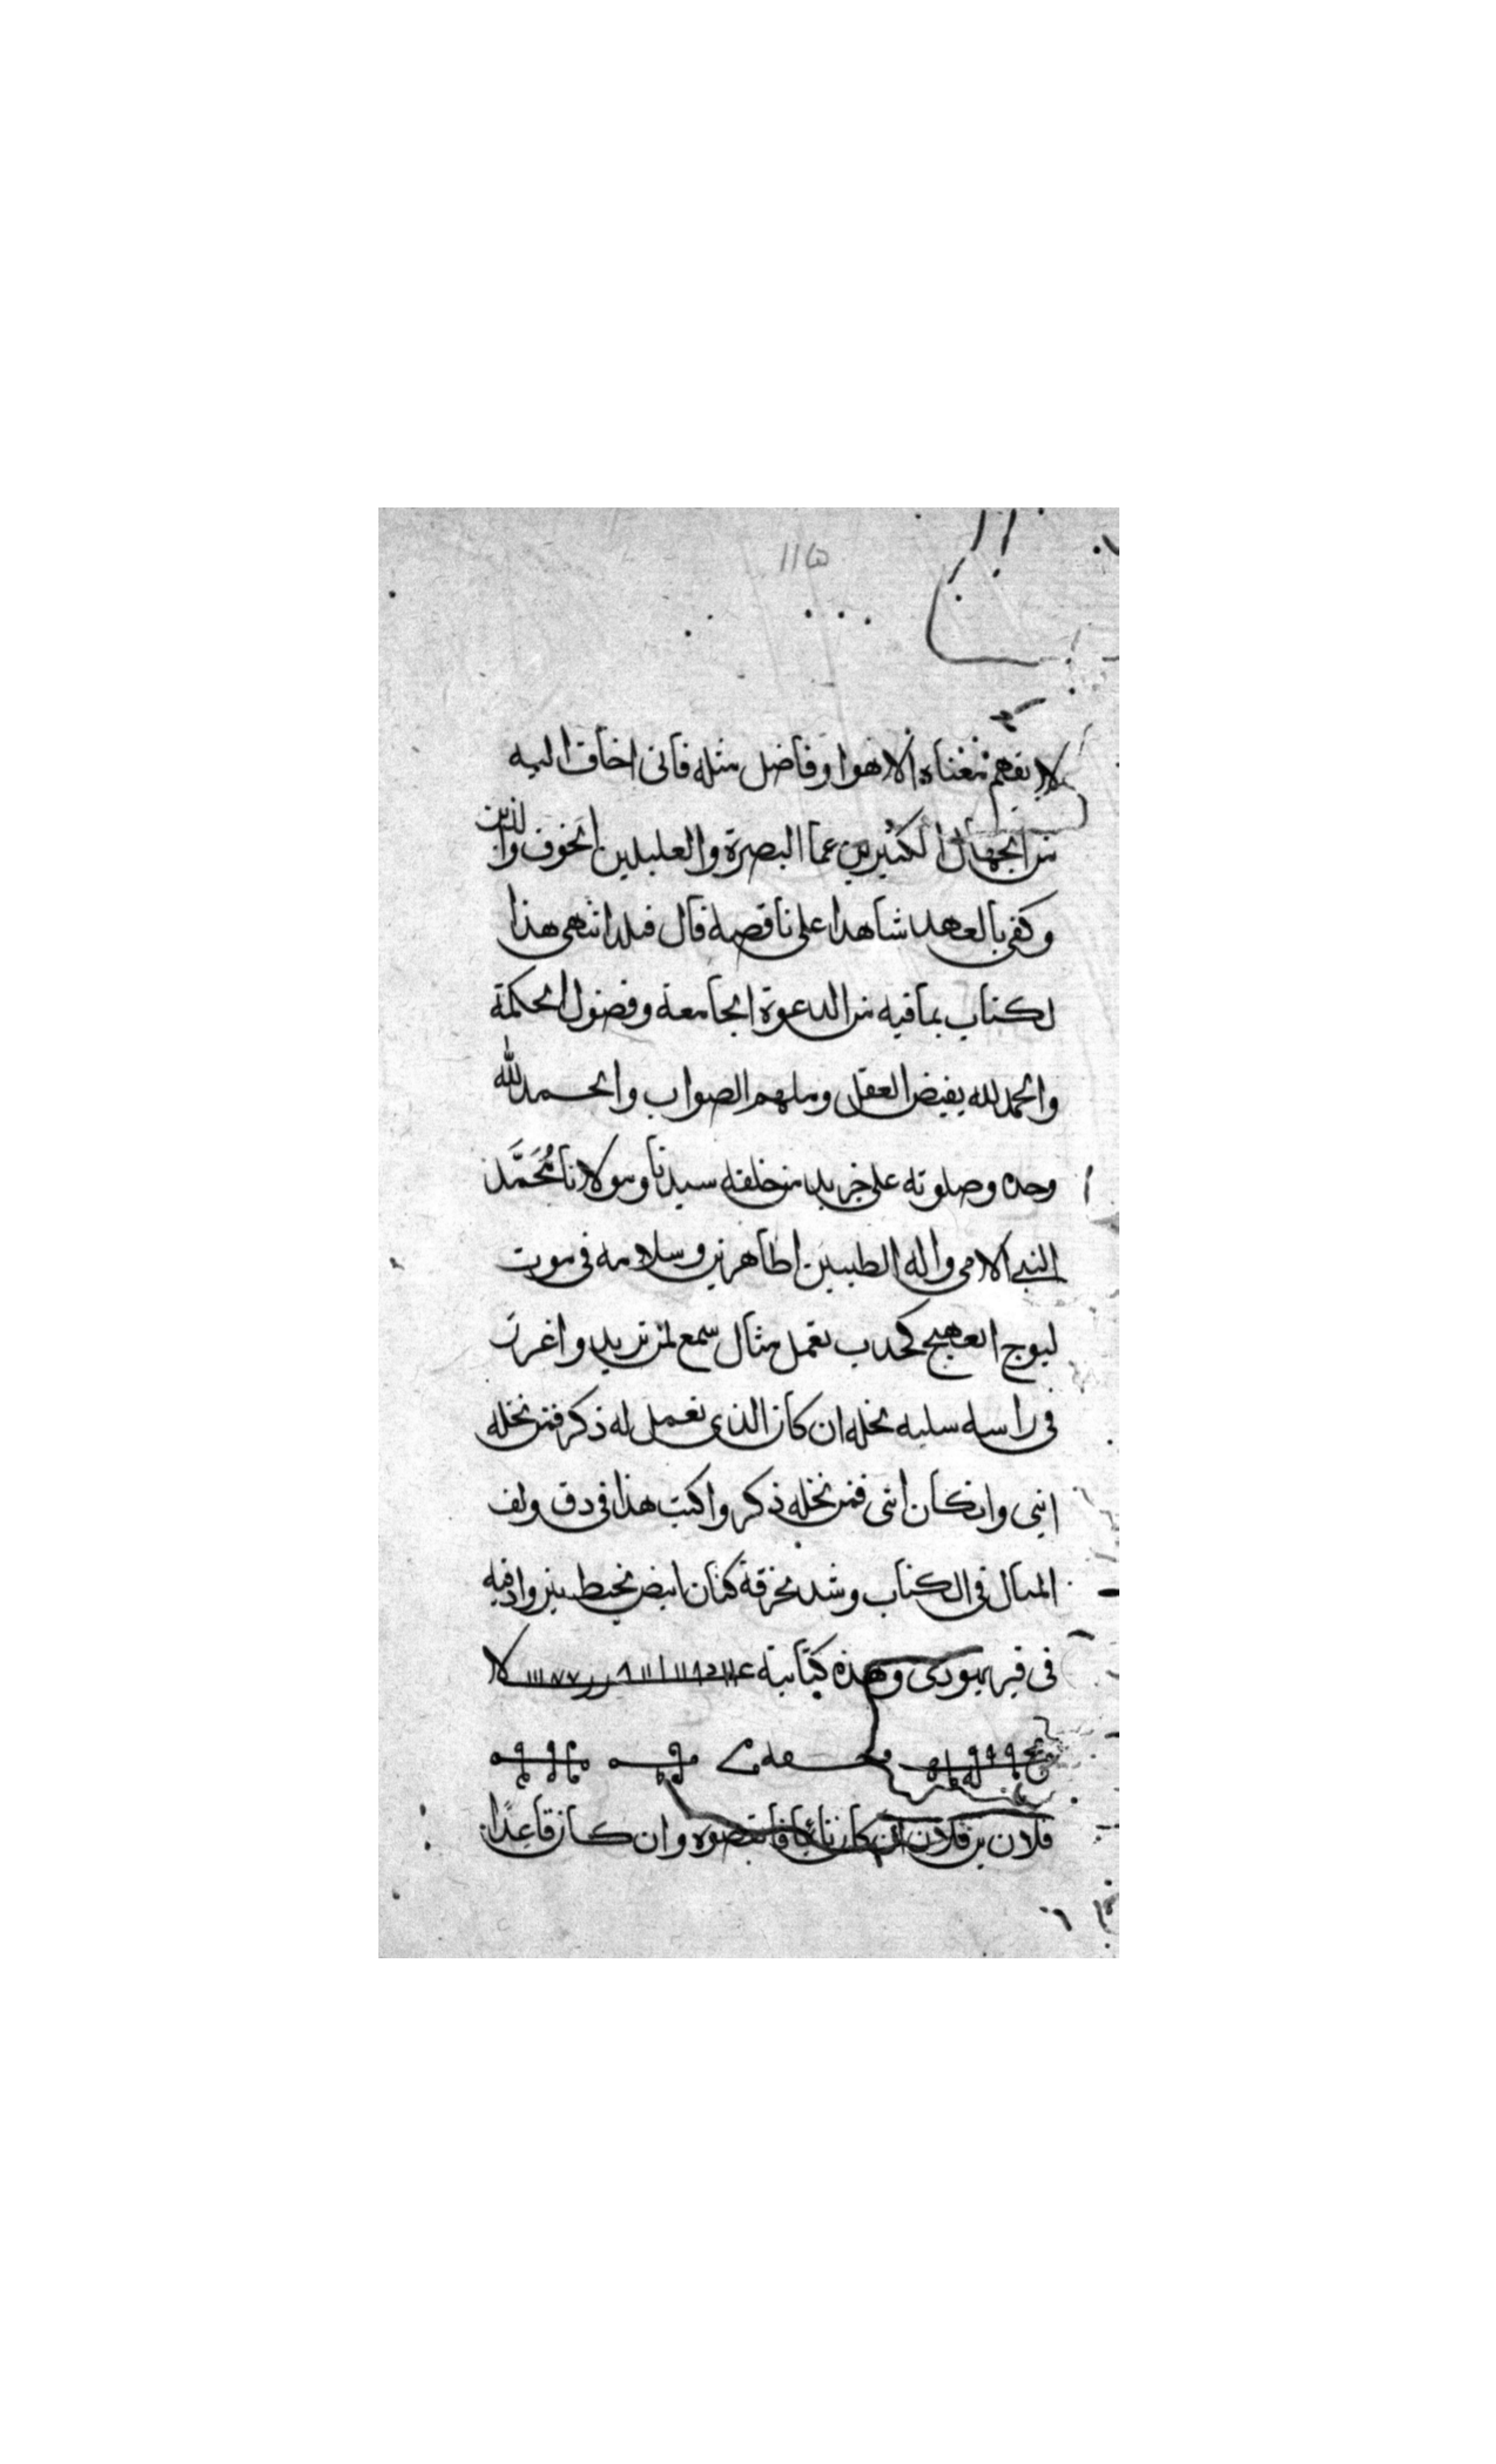 ١١٥
لا يفهم معناه الا هوا وفاضل مثله فانى اخاف اليه
من الجهال الكثيرين عما البصرة والعليلين الخوف والذين
وكفى بالعهد شاهدا على ناقصه قال فلما انتهى هذا
لكتاب بما فيه من الدعوة الجامعة وفصول الحكمة
والحمد لله يفيض العقل وملهم الصواب والحمد لله
وحده وصلوته على من خلقه سيدنا ومولانا مُحَمَّد
النبي الامى واله الطيبين اطاهرين وسلامه فى موت
تعمل مثال سمع لمن تريد واغرز
فى راسه سلبه نخله ان كان الذى تعمل له ذكر فمن نخله
انثى وان كان انثى فمن نخله ذكر واكتب هذا فى دق ولف
المثال فى الكتاب وشد بخرقة كتان ابيض بخيط وادفنه
فى قبر يهودى وهذه كتابته
فلان بن فلان ان كان نائما وان كان قاعدًا